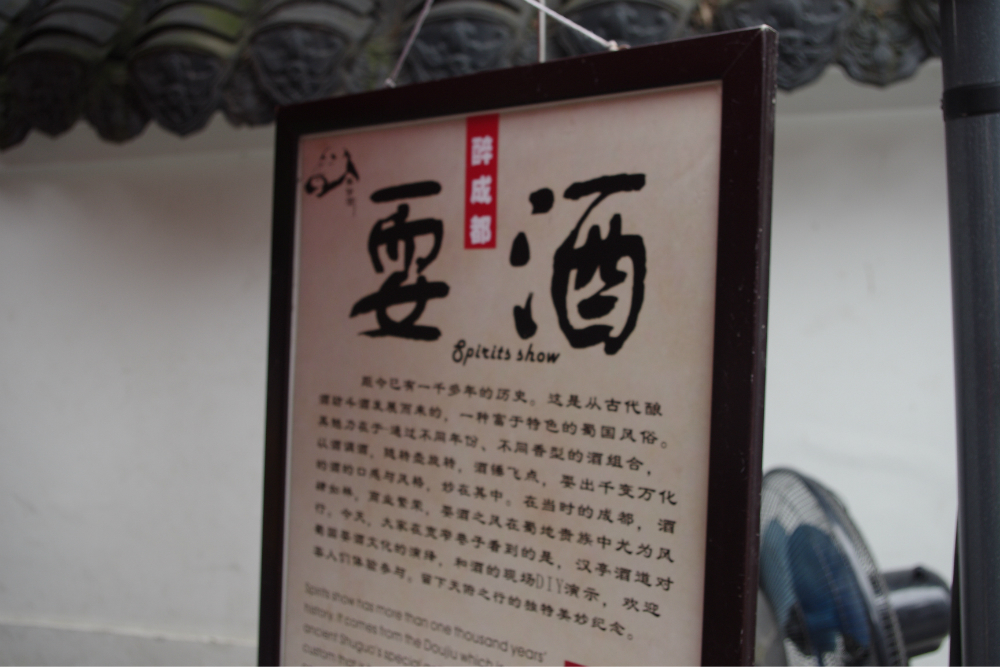 醉成都
耍酒
Spirits show
距今已有一千多年的历史。这是从古代酿
酒助斗酒发展而来的，一种富于特色的蜀国风俗。
其魅力在于通过不同年份、不同香型的酒组合，
以酒调酒，随转壶旋转，酒锤飞点，耍出千变万化
的酒的口感与风格，妙在其中。在当时的成都，酒
肆如林，商业繁荣，耍酒之风在蜀地贵族中尤为风
行。今天，大家在宽窄巷子看到的是，汉亭酒道对
蜀国耍酒文化的演绎，和酒的现场DIY演示，欢迎
客人们体验参与，留下天府之行的独特美妙纪念。
Spirits show has more than one thousand years'
history. It comes from the Doujiu which is
ancient Shuguo's special
custom that